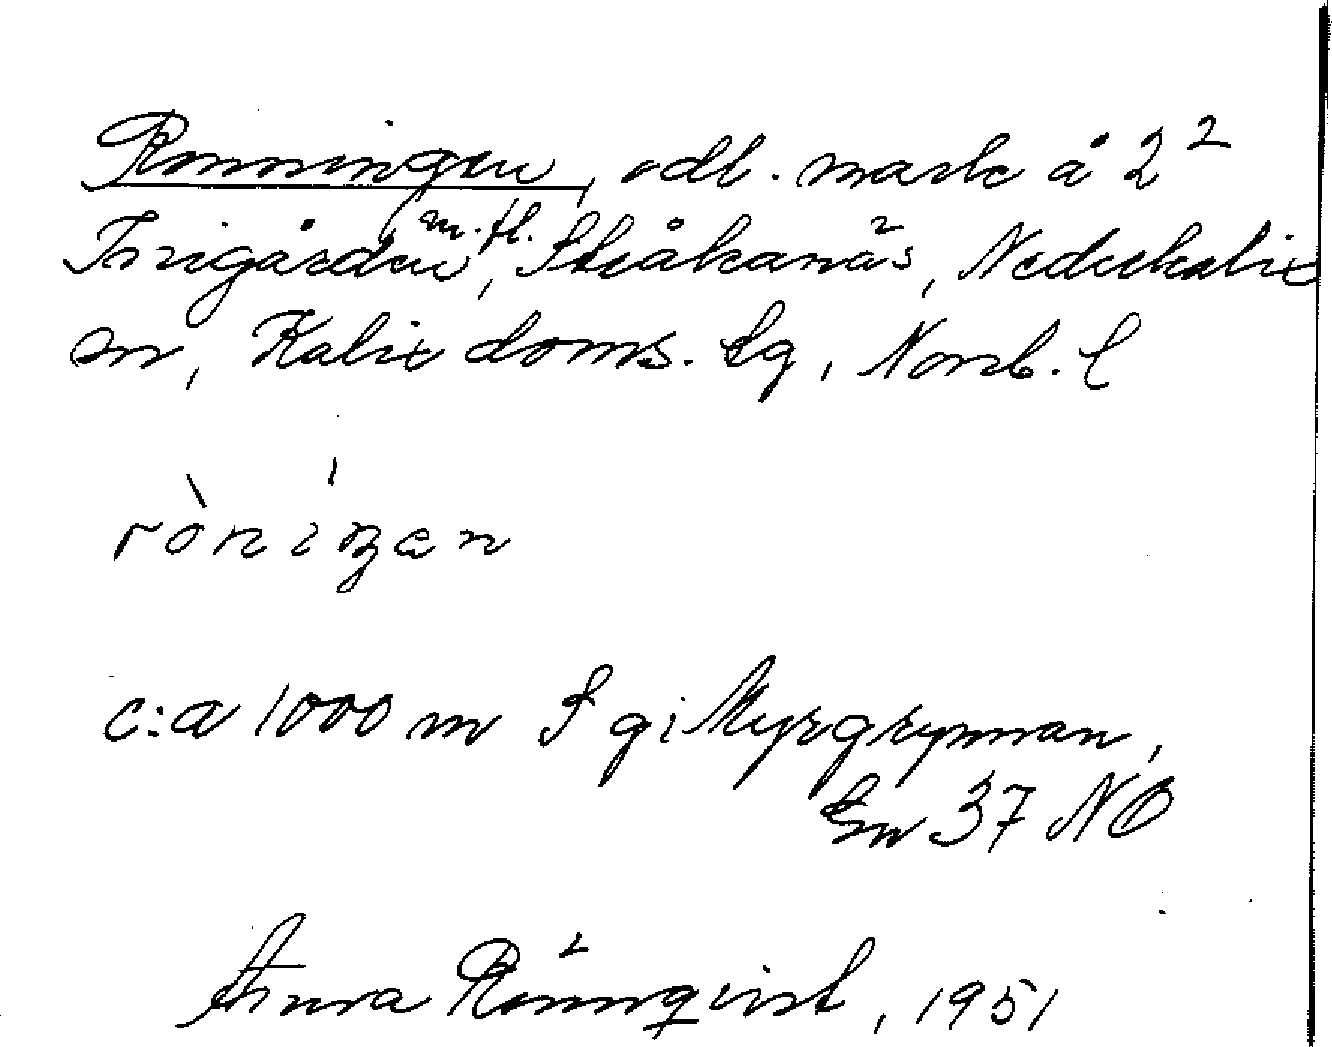 Ronningen, odl. mark å 2²
Trigården m. fl., Stråkanäs, Nederkalix
sn, Kalix doms. sg, Norrb. l
rònia̧en
c:a 1000 m S g: Myrgrynnan,
Gn 37 NO
Anna Rönnqvist, 1951